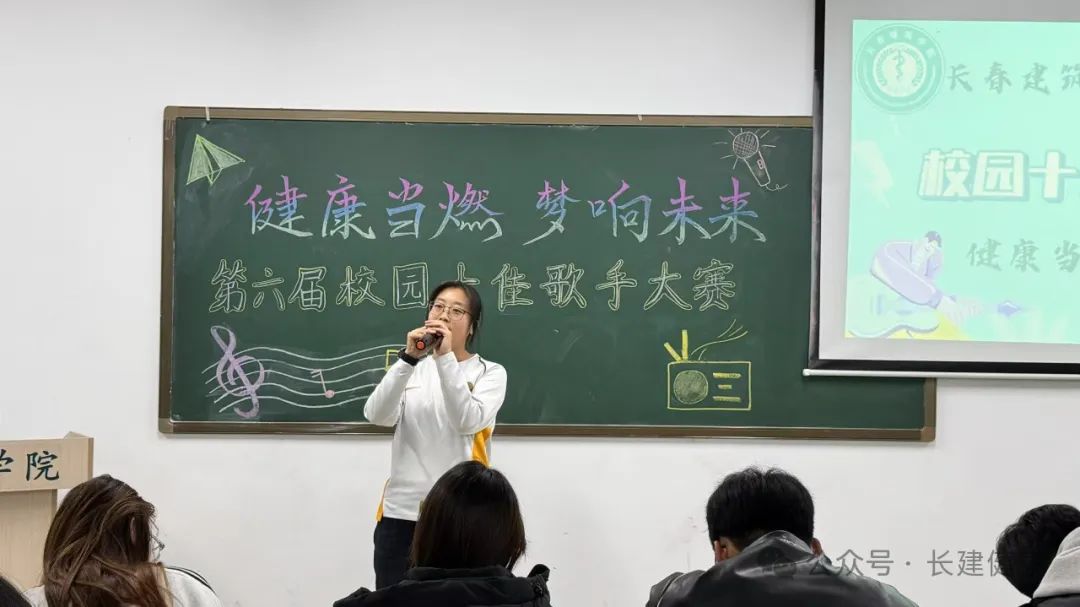 健康当燃 梦响未来
第六届校园十佳歌手大赛
长春建筑
校园十
健康当
学院
公众号·长建健